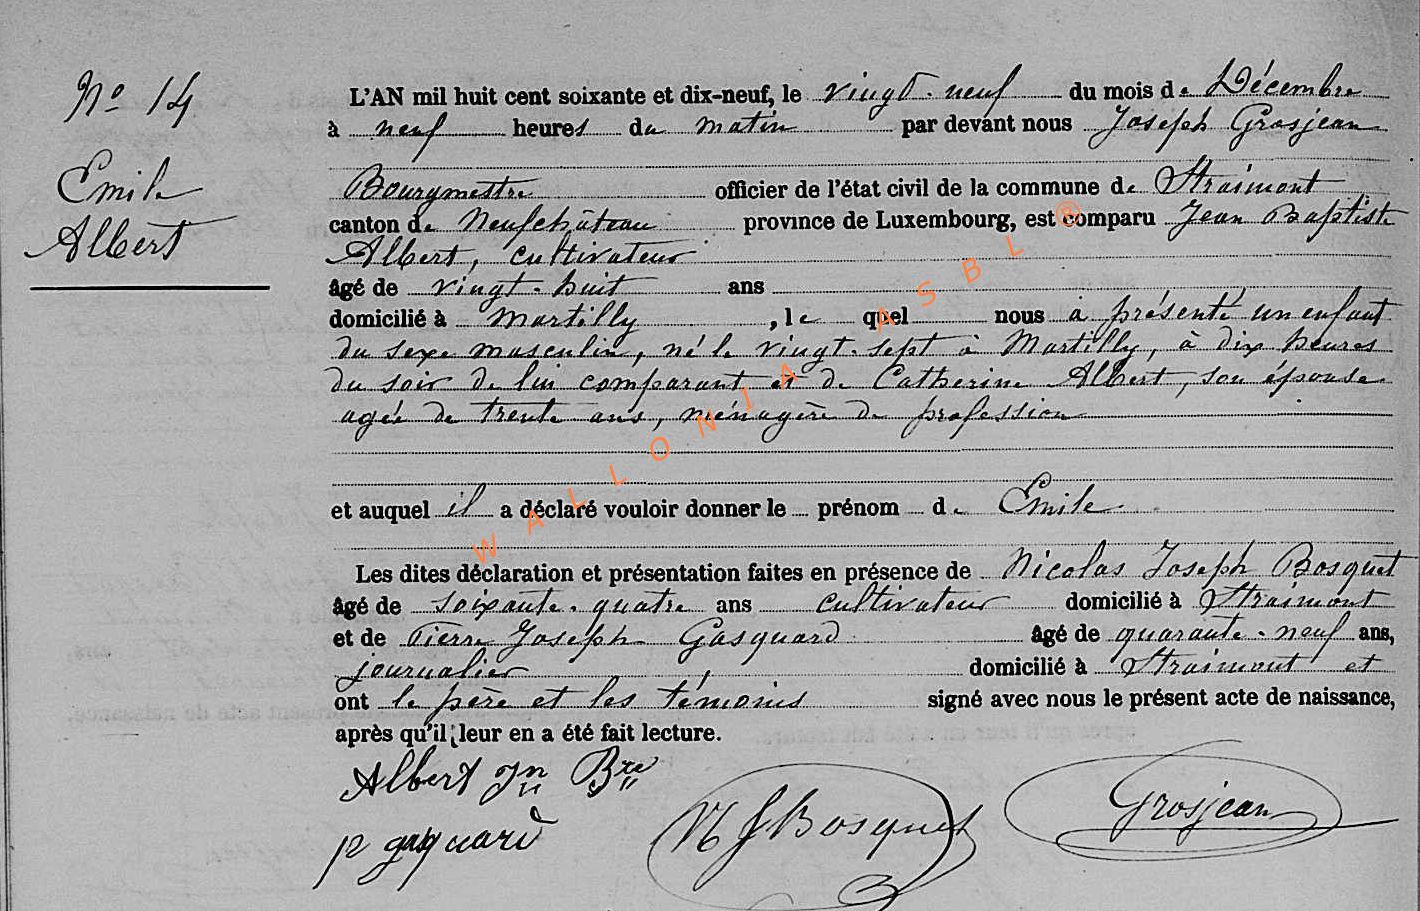 N° 14
Emile
Albert
L'AN mil huit cent soixante et dix-neuf, le vingt-neuf du mois de Décembre
à neuf heures du matin par devant nous Joseph Grosjean
Bourgmestre officier de l'état civil de la commune de Straimont
canton de Neufchâteau province de Luxembourg, est comparu Jean Baptiste
Albert, cultivateur
âgé de vingt-huit ans
domicilié à Martilly, le quel nous a présenté un enfant
du sexe masculin, né le vingt-sept à Martilly, à dix heures
du soir de lui comparant et de Catherine Albert, son épouse
agée de trente ans, ménagère de profession
et auquel il a déclaré vouloir donner le prénom de Emile
Les dites déclaration et présentation faites en présence de Nicolas Joseph Bosquet
âgé de soixante-quatre ans cultivateur domicilié à Straimont
et de Pierre Joseph Gasquard âgé de quarante-neuf ans,
journalier domicilié à Straimont et
ont le père et les témoins signé avec nous le présent acte de naissance,
après qu'il leur en a été fait lecture.
Albert Jn Bte
p gasquard
N J Bosquet
Grosjean
WALLONIA ASBL ®